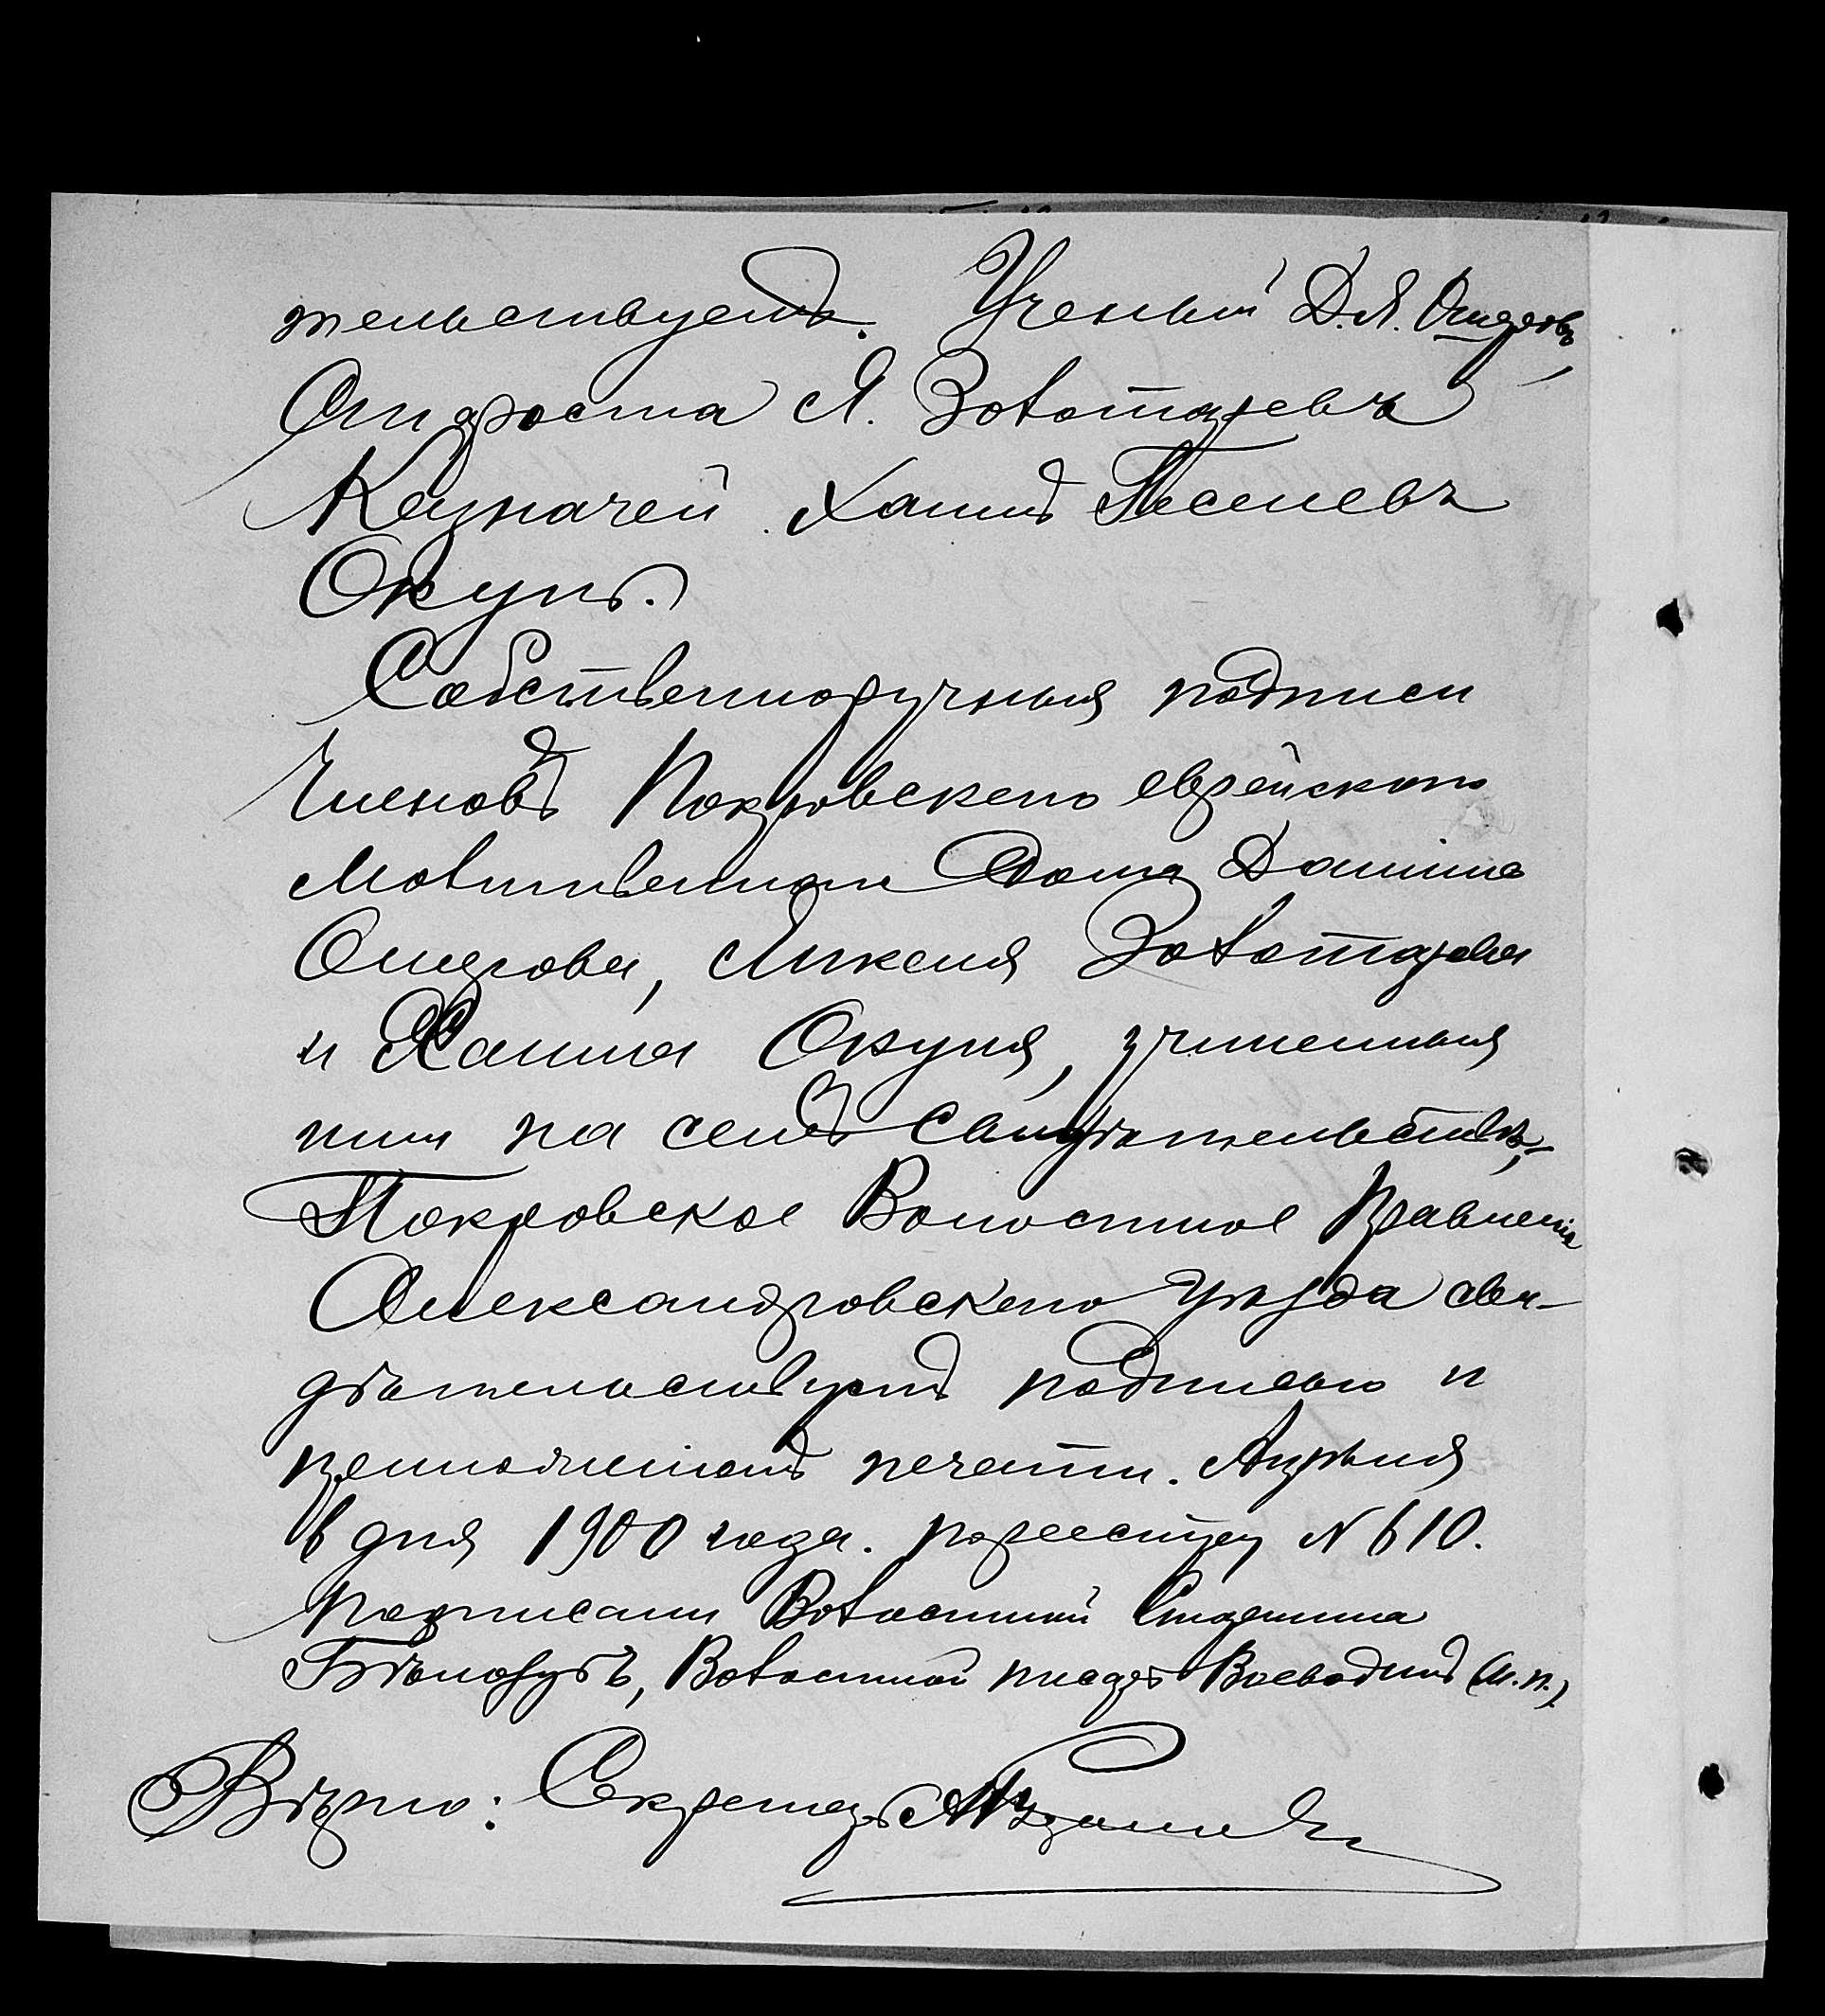 тельствуетъ. Ученый Д. Я.
Староста Я. Золотаревъ
Казначей Хаимъ
Окунь.
Собственноручныя подписи
Членовъ Покровскаго еврейскаго
Молитвеннаго Дома Даніила
Золотарева
и Хаима Окуня, учиненныя
ими на семъ свидѣтельствѣ,
Покровское Волостное Правленіе
Александровскаго уѣзда сви-
дѣтельствуетъ подписью и
приложеніемъ печати. Апрѣля
6 дня 1900 года. по реестру № 610.
Подписали Волостной Старшина
Бѣлозубъ, Волостной писарь Воеводинъ (М. П.)
Вѣрно: Секретарь